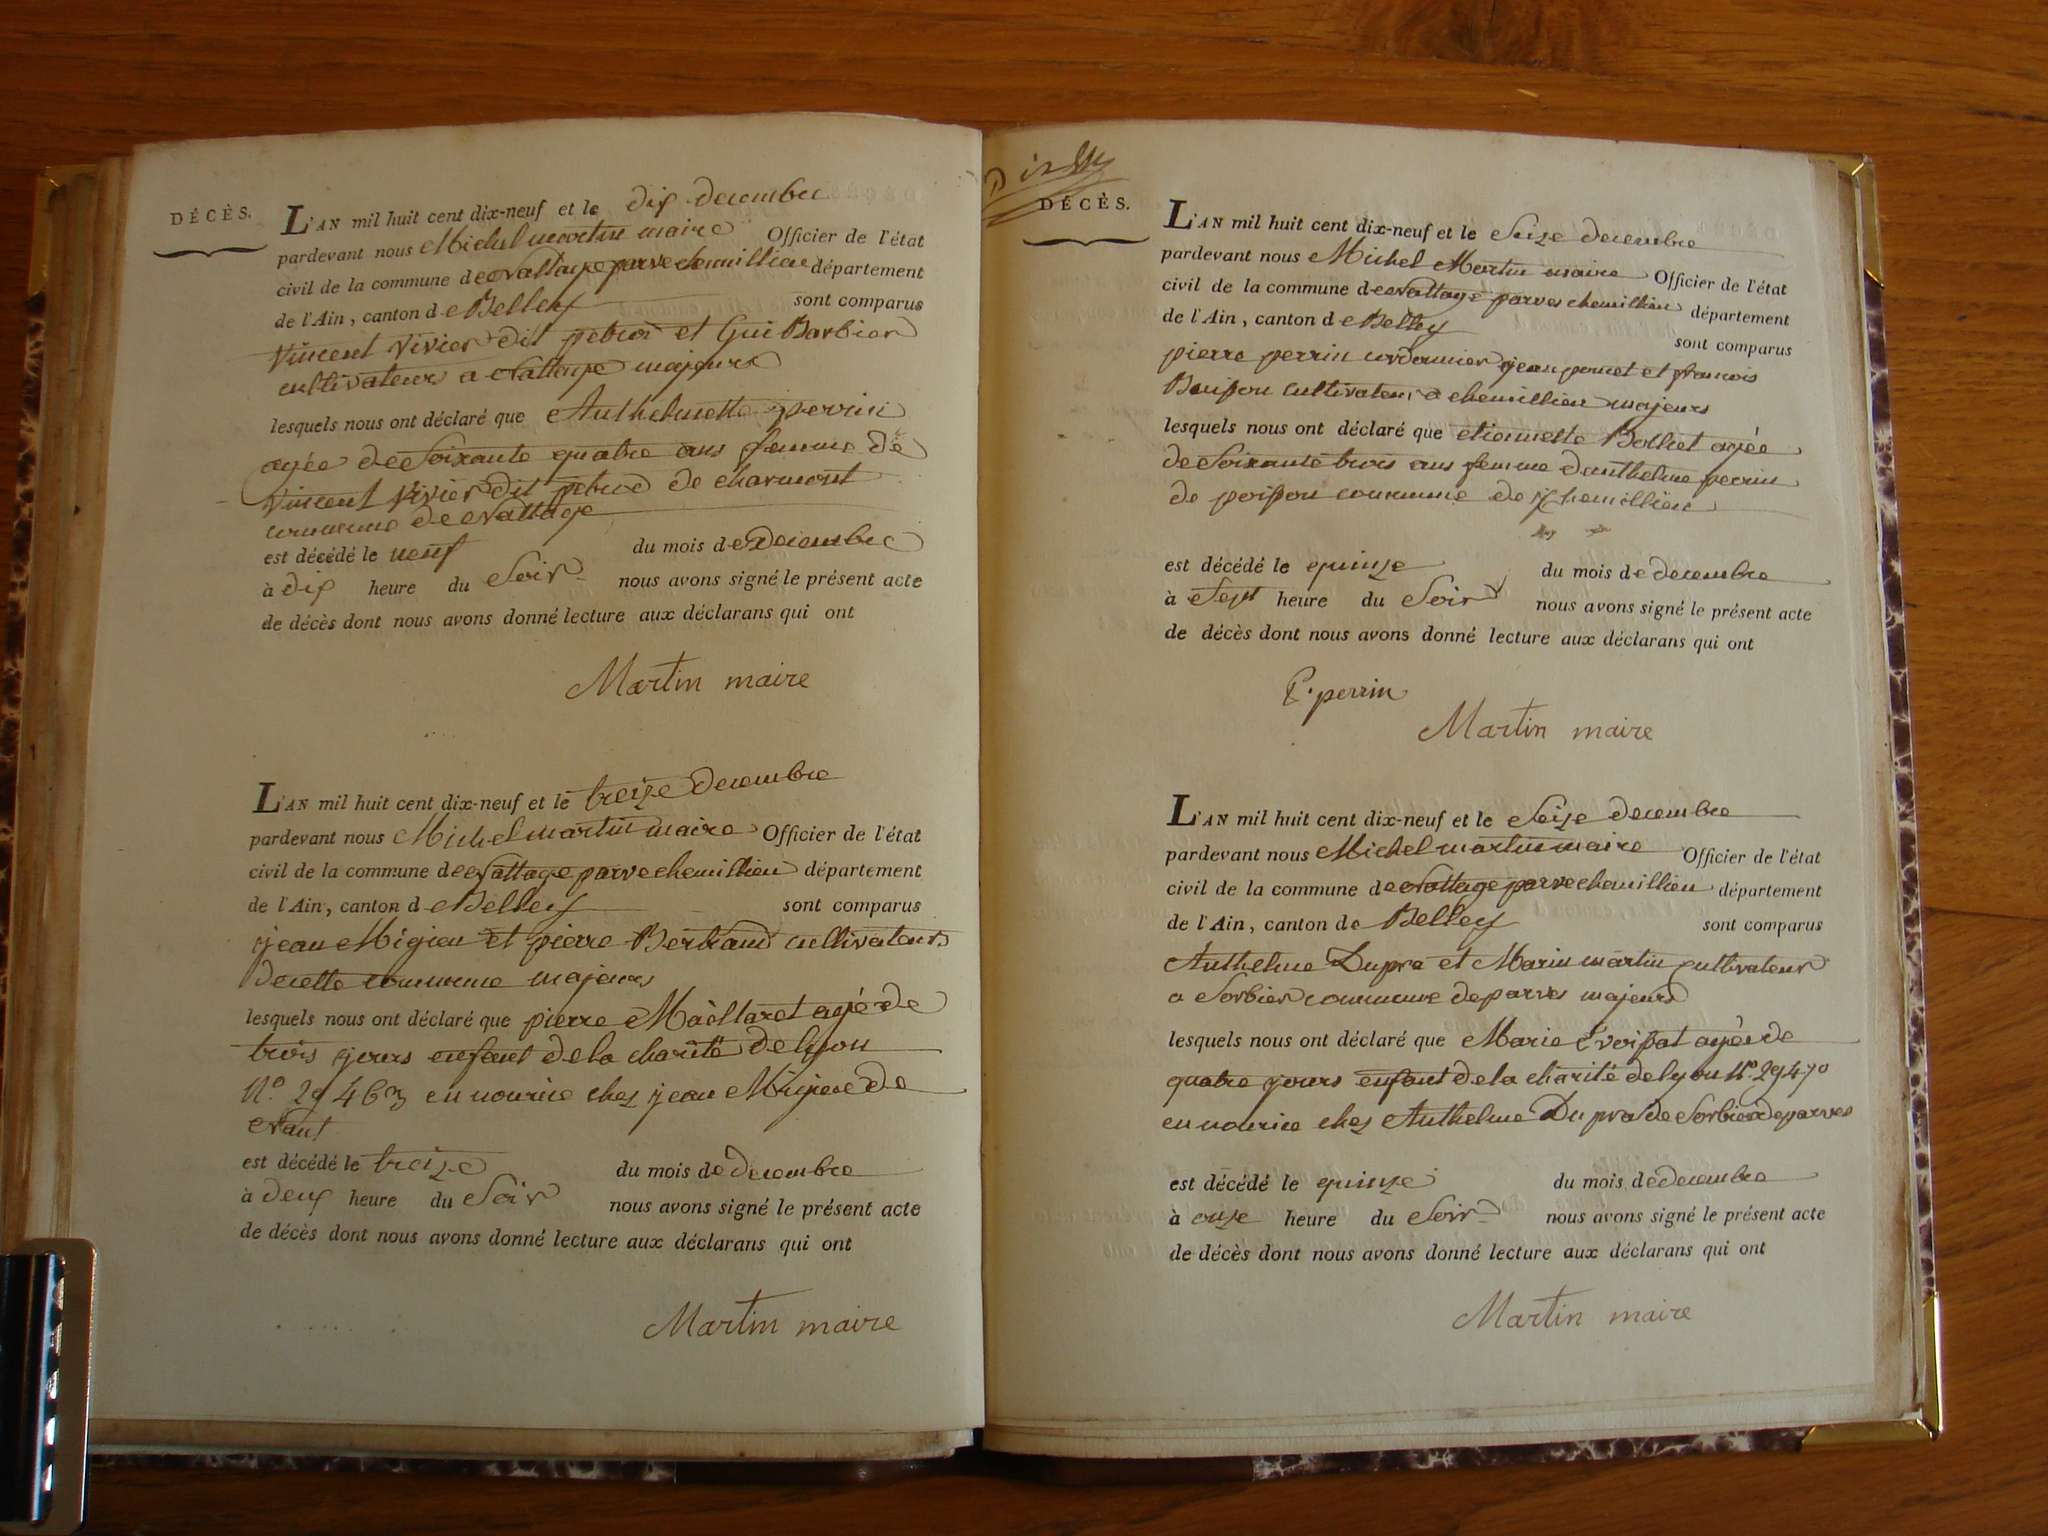 DÉCÈS.
L'AN mil huit cent dix-neuf et le dix decembre
pardevant nous Michel martin maire Officier de l'état
civil de la commune de Nattage parve chemillieu département
de l'Ain, canton de Belley sont comparus
Vincent Vivier dit et Gui Barbier
cultivateurs a Nattage majeurs
lesquels nous ont déclaré que Anthelmette perrin
agée de Soixante quatre ans femme de
Vincent Vivier dit de charmont
commune de Nattage
est décédé le neuf du mois de Decembre
à dix heure du Soir nous avons signé le présent acte
de décès dont nous avons donné lecture aux déclarans qui ont
Martin maire
L'AN mil huit cent dix-neuf et le treize Decembre
pardevant nous Michel martin maire Officier de l'état
civil de la commune de Nattage parve chemillieu département
de l'Ain, canton d Belley sont comparus
jean Migieu et pierre Bertrand cultivateurs
de cette commune majeurs
lesquels nous ont déclaré que pierre agé de
trois jours enfant de la charité de lyon
N.º 29463 en nourice chez jean Migieu de
Nant
est décédé le treize du mois de Decembre
à deux heure du Soir nous avons signé le présent acte
de décès dont nous avons donné lecture aux déclarans qui ont
Martin maire
DÉCÈS.
L'AN mil huit cent dix-neuf et le Seize decembre
pardevant nous Michel Martin maire Officier de l'état
civil de la commune de Nattage parves chemillieu département
de l'Ain, canton de Belley
sont comparus
pierre perrin cordonnier jean et francois
cultivateurs a chemillieu majeurs
lesquels nous ont déclaré que etiennette agée
de Soixante trois ans femme d'anthelme perrin
de poisson commune de chemillieu
est décédé le quinze du mois de decembre
à Sept heure du Soir nous avons signé le présent acte
de décès dont nous avons donné lecture aux déclarans qui ont
P. perrin
Martin maire
L'AN mil huit cent dix-neuf et le Seize decembre
pardevant nous Michel martin maire Officier de l'état
civil de la commune de Nattage parve chemillieu département
de l'Ain, canton de Belley sont comparus
Anthelme Dupra et Marin martin cultivateur
a Sorbier commune de parves majeurs
lesquels nous ont déclaré que Marie agée de
quatre jours enfant de la charité de lyon N.º 29470
en nourice chez Anthelme Dupra de Sorbier de parves
est décédé le quinze du mois de decembre
à onze heure du Soir nous avons signé le présent acte
de décès dont nous avons donné lecture aux déclarans qui ont
Martin maire